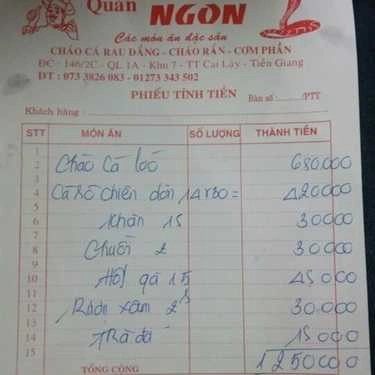 Quán NGON
Các món ăn đặc sản
CHÁO CÁ RAU ĐẮNG - CHÁO RẮN - CƠM PHẦN
ĐC : 146/2C - QL 1A - Khu 7 - TT Cai Lậy - Tiền Giang
ĐT : 073 3826 083 - 01273 343 502
PHIẾU TÍNH TIỀN
Bàn số :......./PTT
Khách hàng :
STT MÓN ĂN SỐ LƯỢNG THÀNH TIỀN
1
2 Cháo Cá lóc 680.000
3
4 Cá Rô chiên dòn 14x30= 420000
5
6 Khăn 15 30000
7
8 Chuối 2 30000
9
10 gà 15 45000
11
12 2 30.000
13
14 Trà đá 15000
15 1250000
TỔNG CỘNG